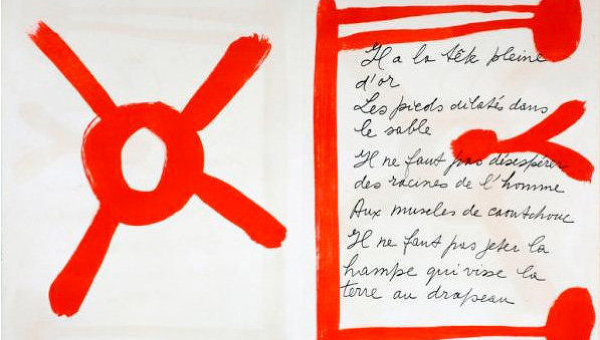 Il a la tête pleine
d'or
Les pieds dilatés dans
le sable
Il ne faut pas désespérer
des racines de l'homme
Aux muscles de caoutchouc
Il ne faut pas jeter la
hampe qui visse la
terre au drapeau